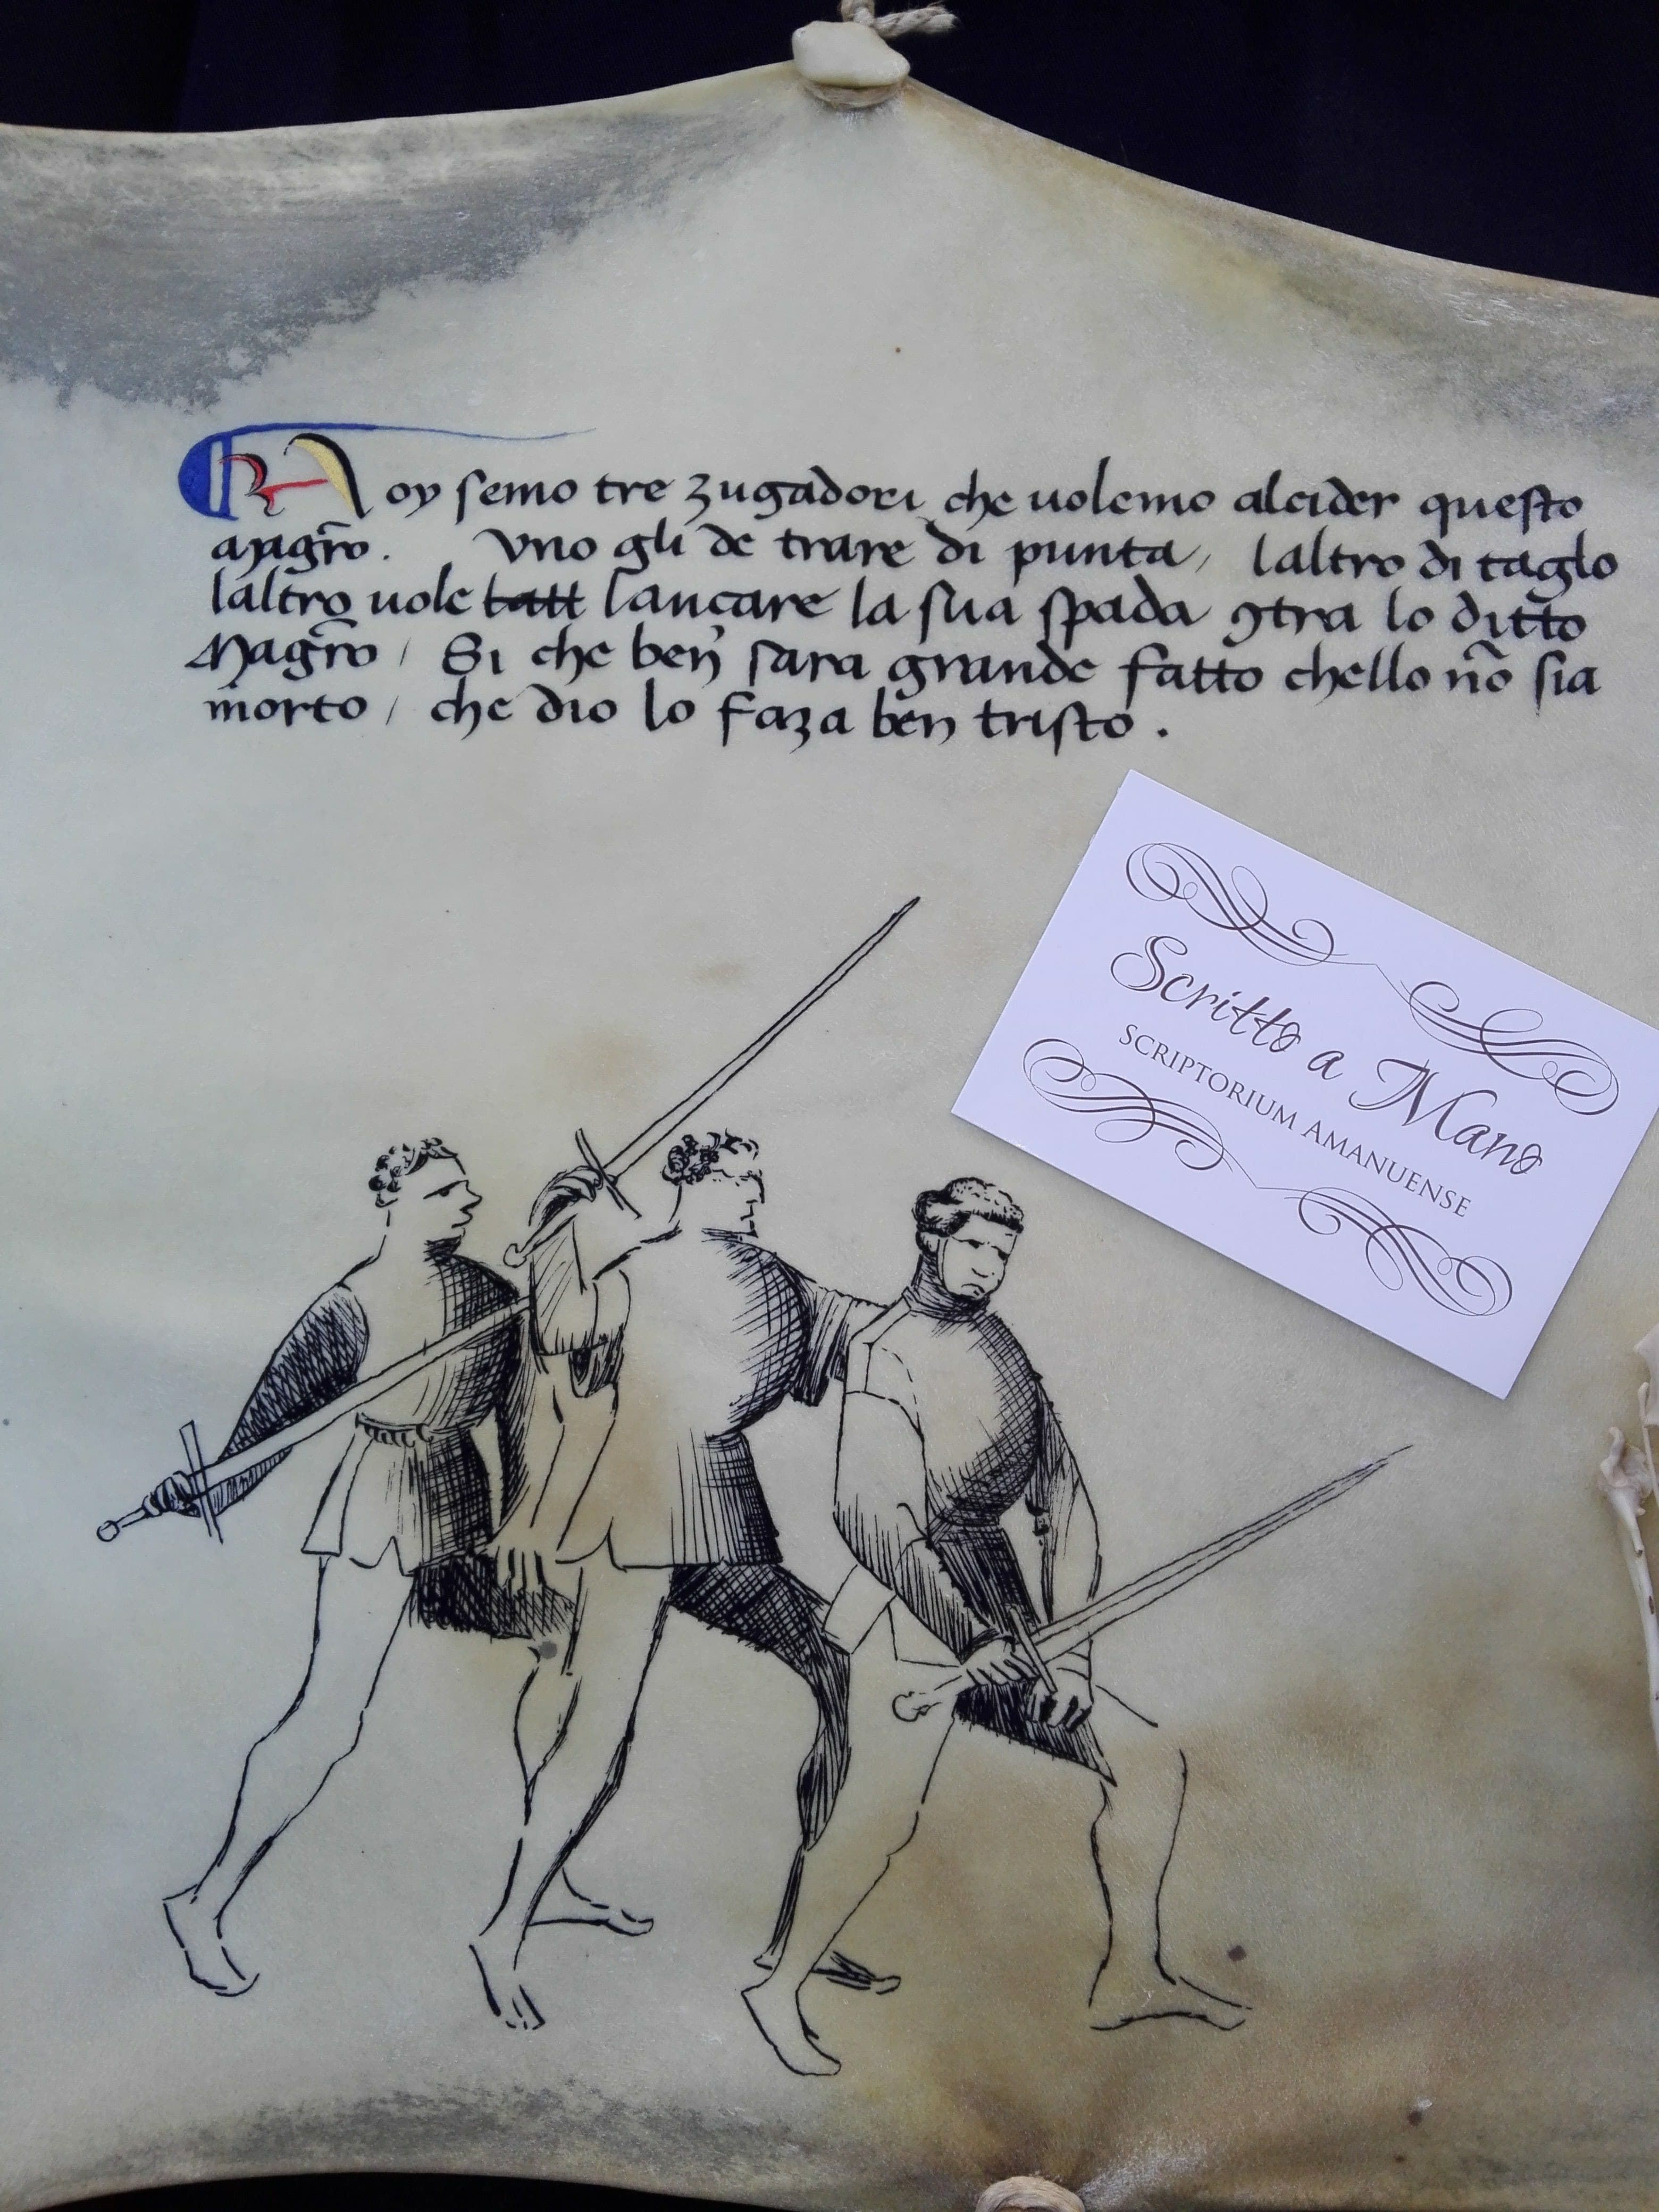 Noy semo tre zugadori che uolemo alcider questo
magr̃o. Vno gli de trare di punta, laltro di taglo
laltro uole tatt lançare la sua spada ꝯtra lo ditto
Magr̃o / Si che ben sara grande fatto chello nõ sia
morto / che dio lo faza ben tristo.
Scritto a Mano
SCRIPTORIUM AMANUENSE